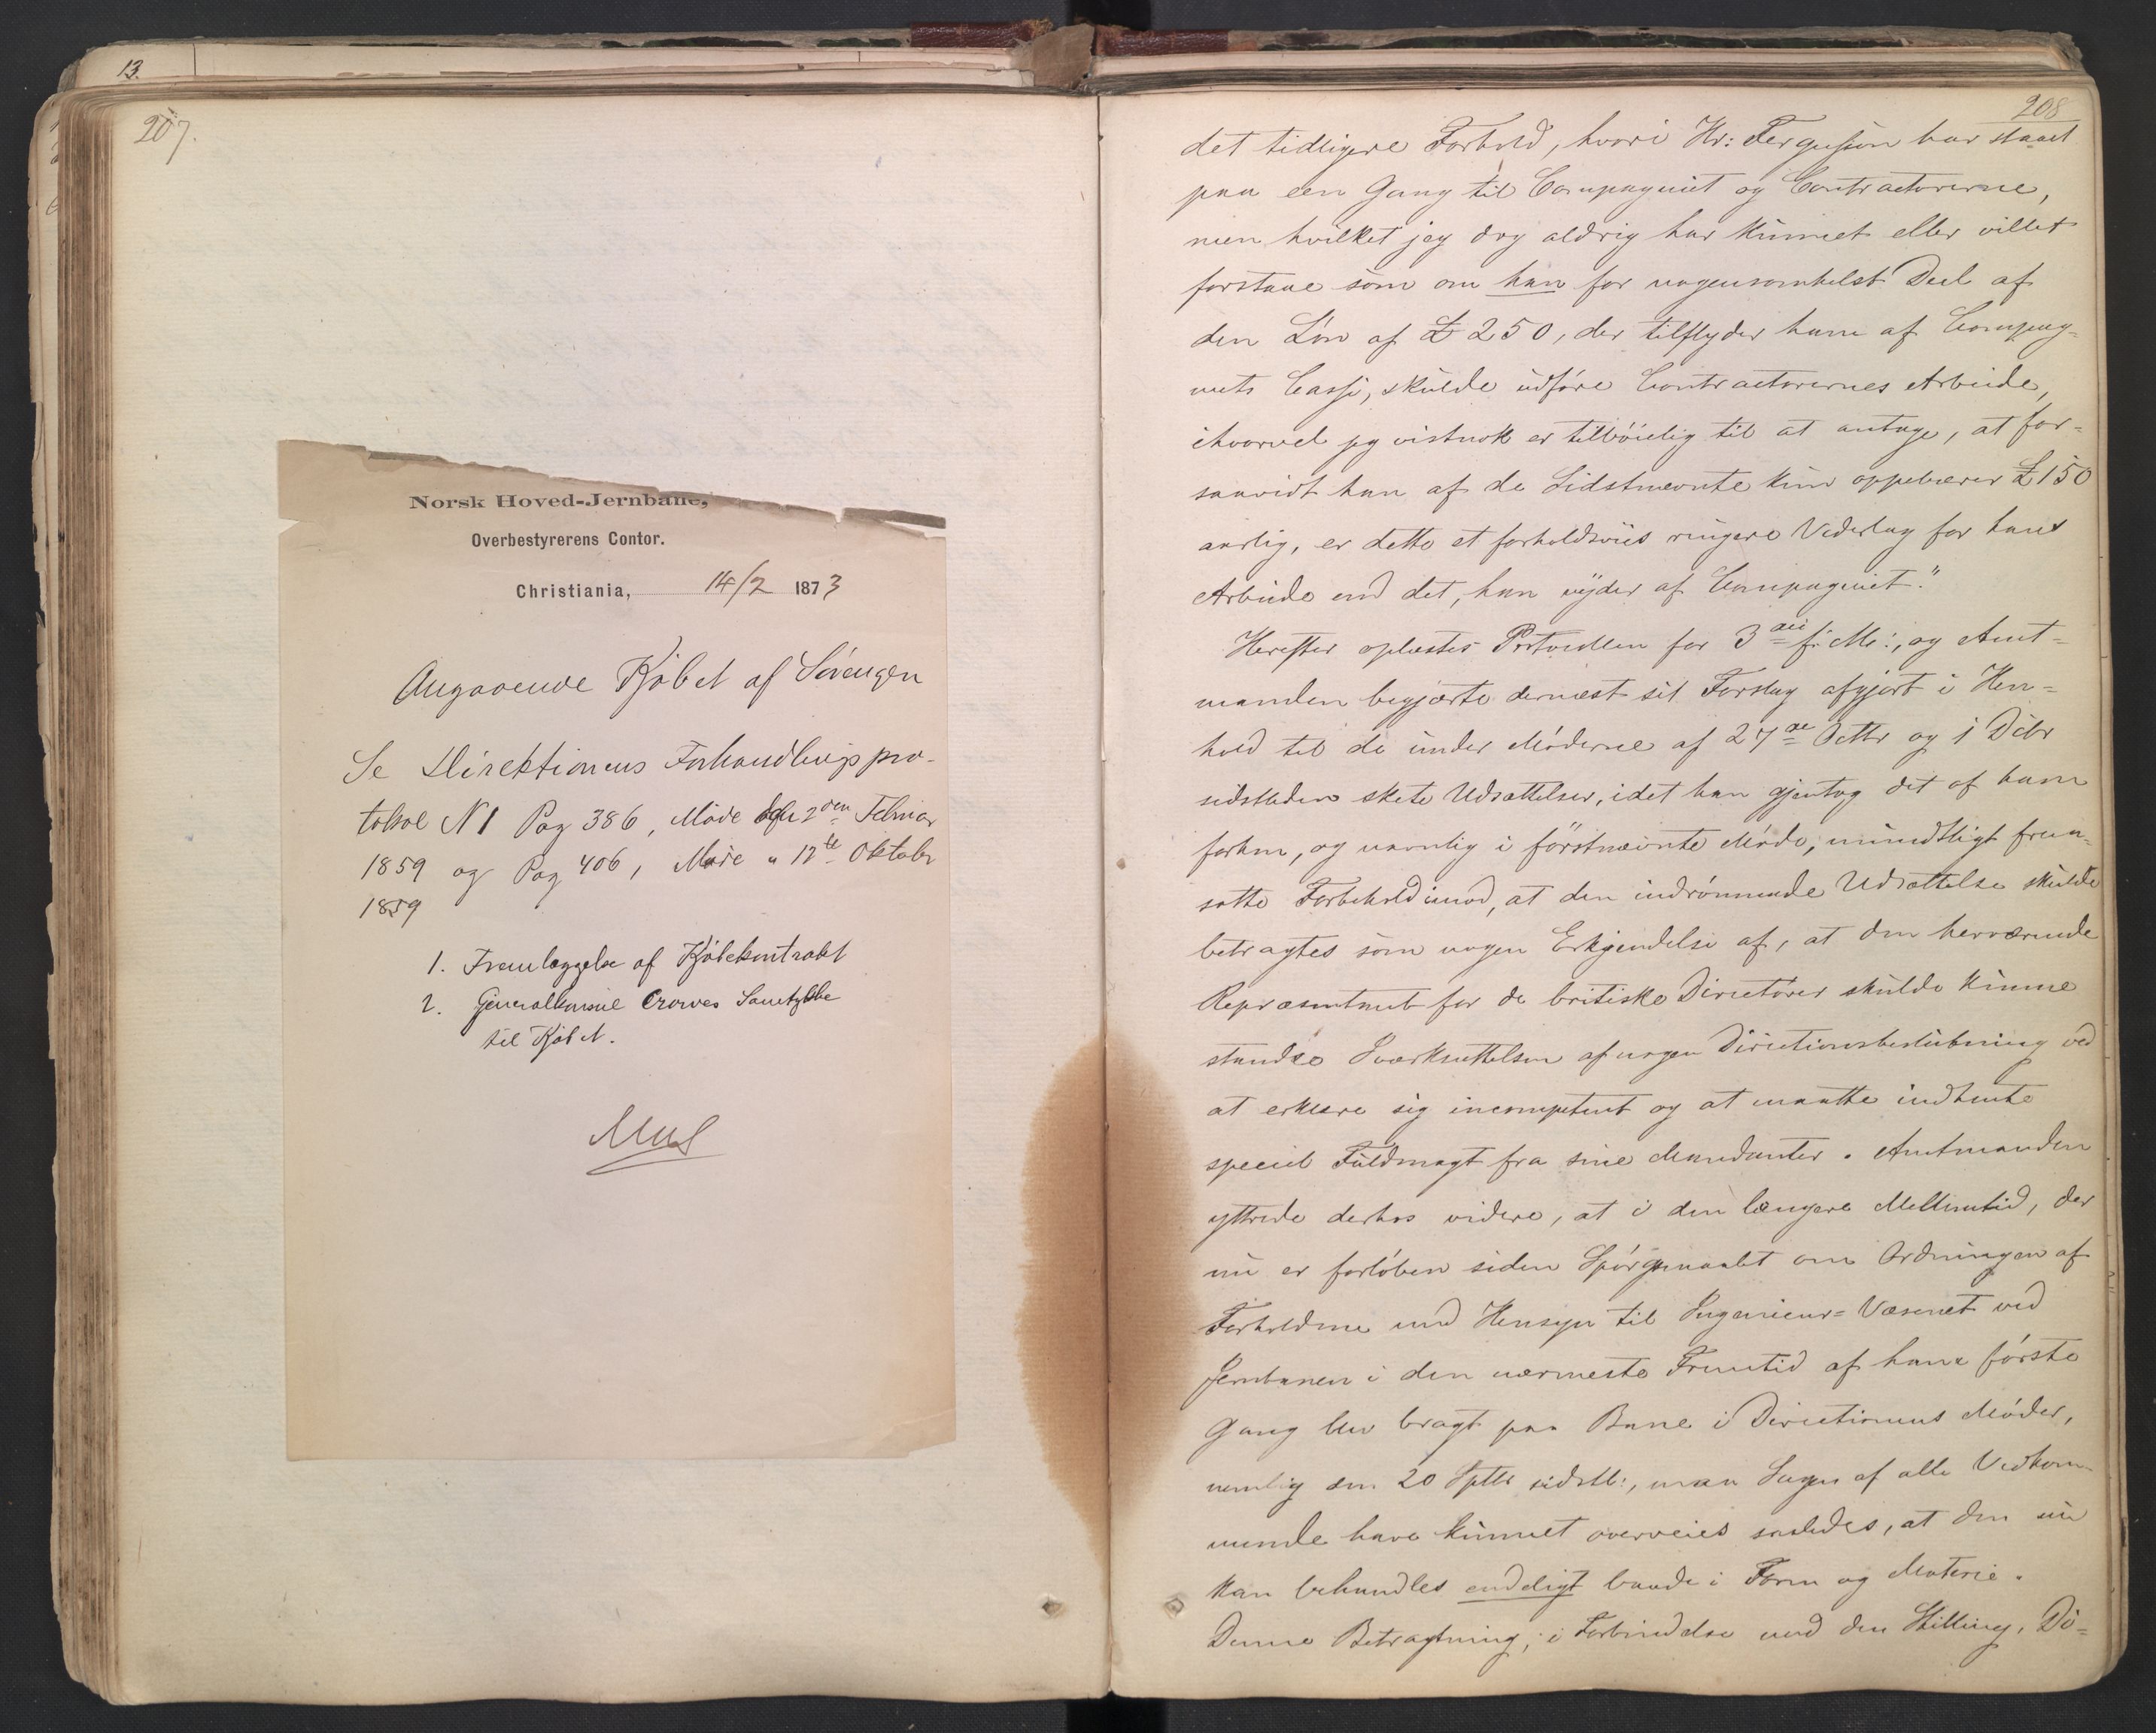 13.
207.
Norsk Hoved-Jernbane,
Overbestyrerens Contor.
Christiania, 14/2 1873
Angaaende Kjøbet af Sørengen
Se Direktionens Forhandlingspro-
tokol N 1 Pag 386, Møde 2den Februar
1859 og Pag 406, Møde " 12te Oktober
1859
1. Fremlæggelse af Kjøbekontrakt
2. Generalkonsul Crowes Samtykke
til Kjøbet.
208
det tidligere Forhold, hvori Hr: Fergusson har staaet
paa een Gang til Compagniet og Contractorerne,
men hvilket jeg dog aldrig har kunnet eller villet
forstaae som om han for nogensomhelst Deel af
den Løn af £ 250, der tilflyder ham af Compag-
niets Casse, skulde udføre Contractorernes Arbeide,
ihvorvel jeg vistnok er tilbøielig til at antage, at for-
saavidt han af de Sidstnævnte kun oppebærer £ 150
aarlig, er dette et forholdsviis ringere Vederlag for hans
Arbeide end det, han nyder af Compagniet."
Herefter oplæstes Protocollen for 3die f: M:, og Amt-
manden begjærte dernæst sit Forslag afgjort i Hen-
hold til de under Møderne af 27de Octbr og 1 Decbr
sidstleden skete Udsættelser, idet han gjentog det af ham
forhen, og navnlig i førstnævnte Møde, mundtligt frem-
satte Forbehold imod, at den indrømmede Udsættelse skulde
betragtes som nogen Erkjendelse af, at den herværende
Repræsentant for de britiske Directører skulde kunne
standse Iværksættelsen af nogen Directionsbeslutning ved
at erklære sig incompetent og at maatte indhente
speciel Fuldmagt fra sine Mandanter. Amtmanden
yttrede derhos videre, at i den længere Mellemtid, der
nu er forløben siden Spørgsmaalet om Ordningen af
Forholdene med Hensyn til Ingenieur-Væsenet ved
Jernbanen i den nærmeste Fremtid af ham første
Gang blev bragt paa Bane i Directionens Møder,
nemlig den 20 Septbr sidstl:, maa Sagen af alle Vedkom-
mende have kunnet overveies saaledes, at den nu
kan behandles endeligt baade i Form og Materie.
Denne Betragtning, i Forbindelse med den Stilling,